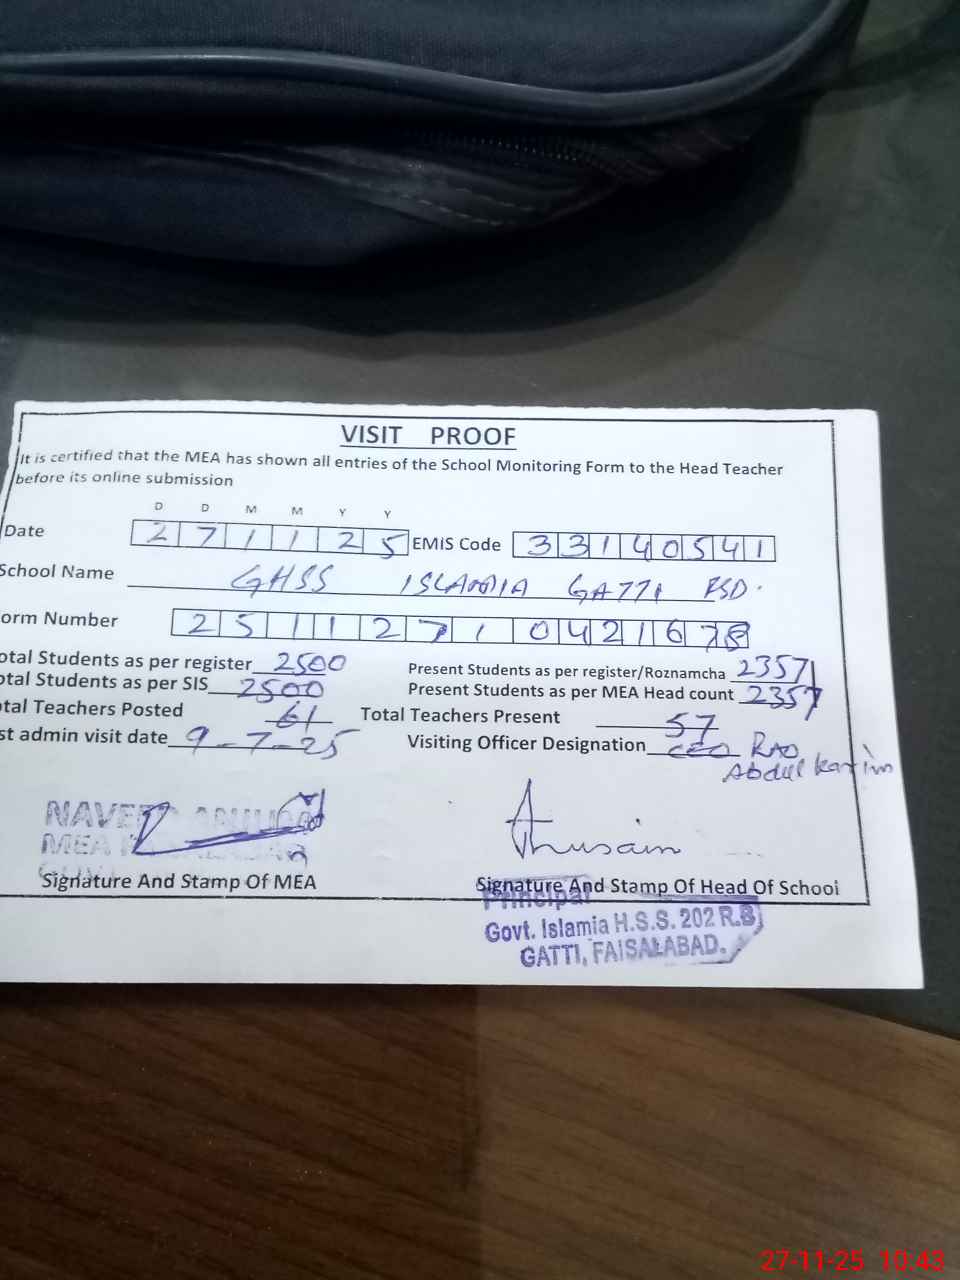 VISIT PROOF
It is certified that the MEA has shown all entries of the School Monitoring Form to the Head Teacher
before its online submission
D D M M Y Y
Date 2 7 1 1 2 5 EMIS Code 3 3 1 4 0 5 4 1
School Name GHSS ISLAMIA GATTI FSD.
orm Number 2 5 1 1 2 7 1 0 4 2 1 6 7 8
otal Students as per register 2500 Present Students as per register/Roznamcha 2357
otal Students as per SIS 2500 Present Students as per MEA Head count 2357
tal Teachers Posted 61 Total Teachers Present 57
st admin visit date 9-7-25 Visiting Officer Designation CEO RAO
Abdul Karim
NAVEED
MEA
Signature And Stamp Of MEA Signature And Stamp Of Head Of School
Principal
Govt. Islamia H.S.S. 202 R.B
GATTI, FAISALABAD.
27-11-25 10:43